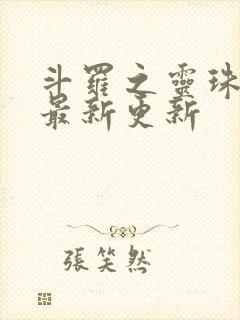 斗羅之靈珠
最新更新
張笑然